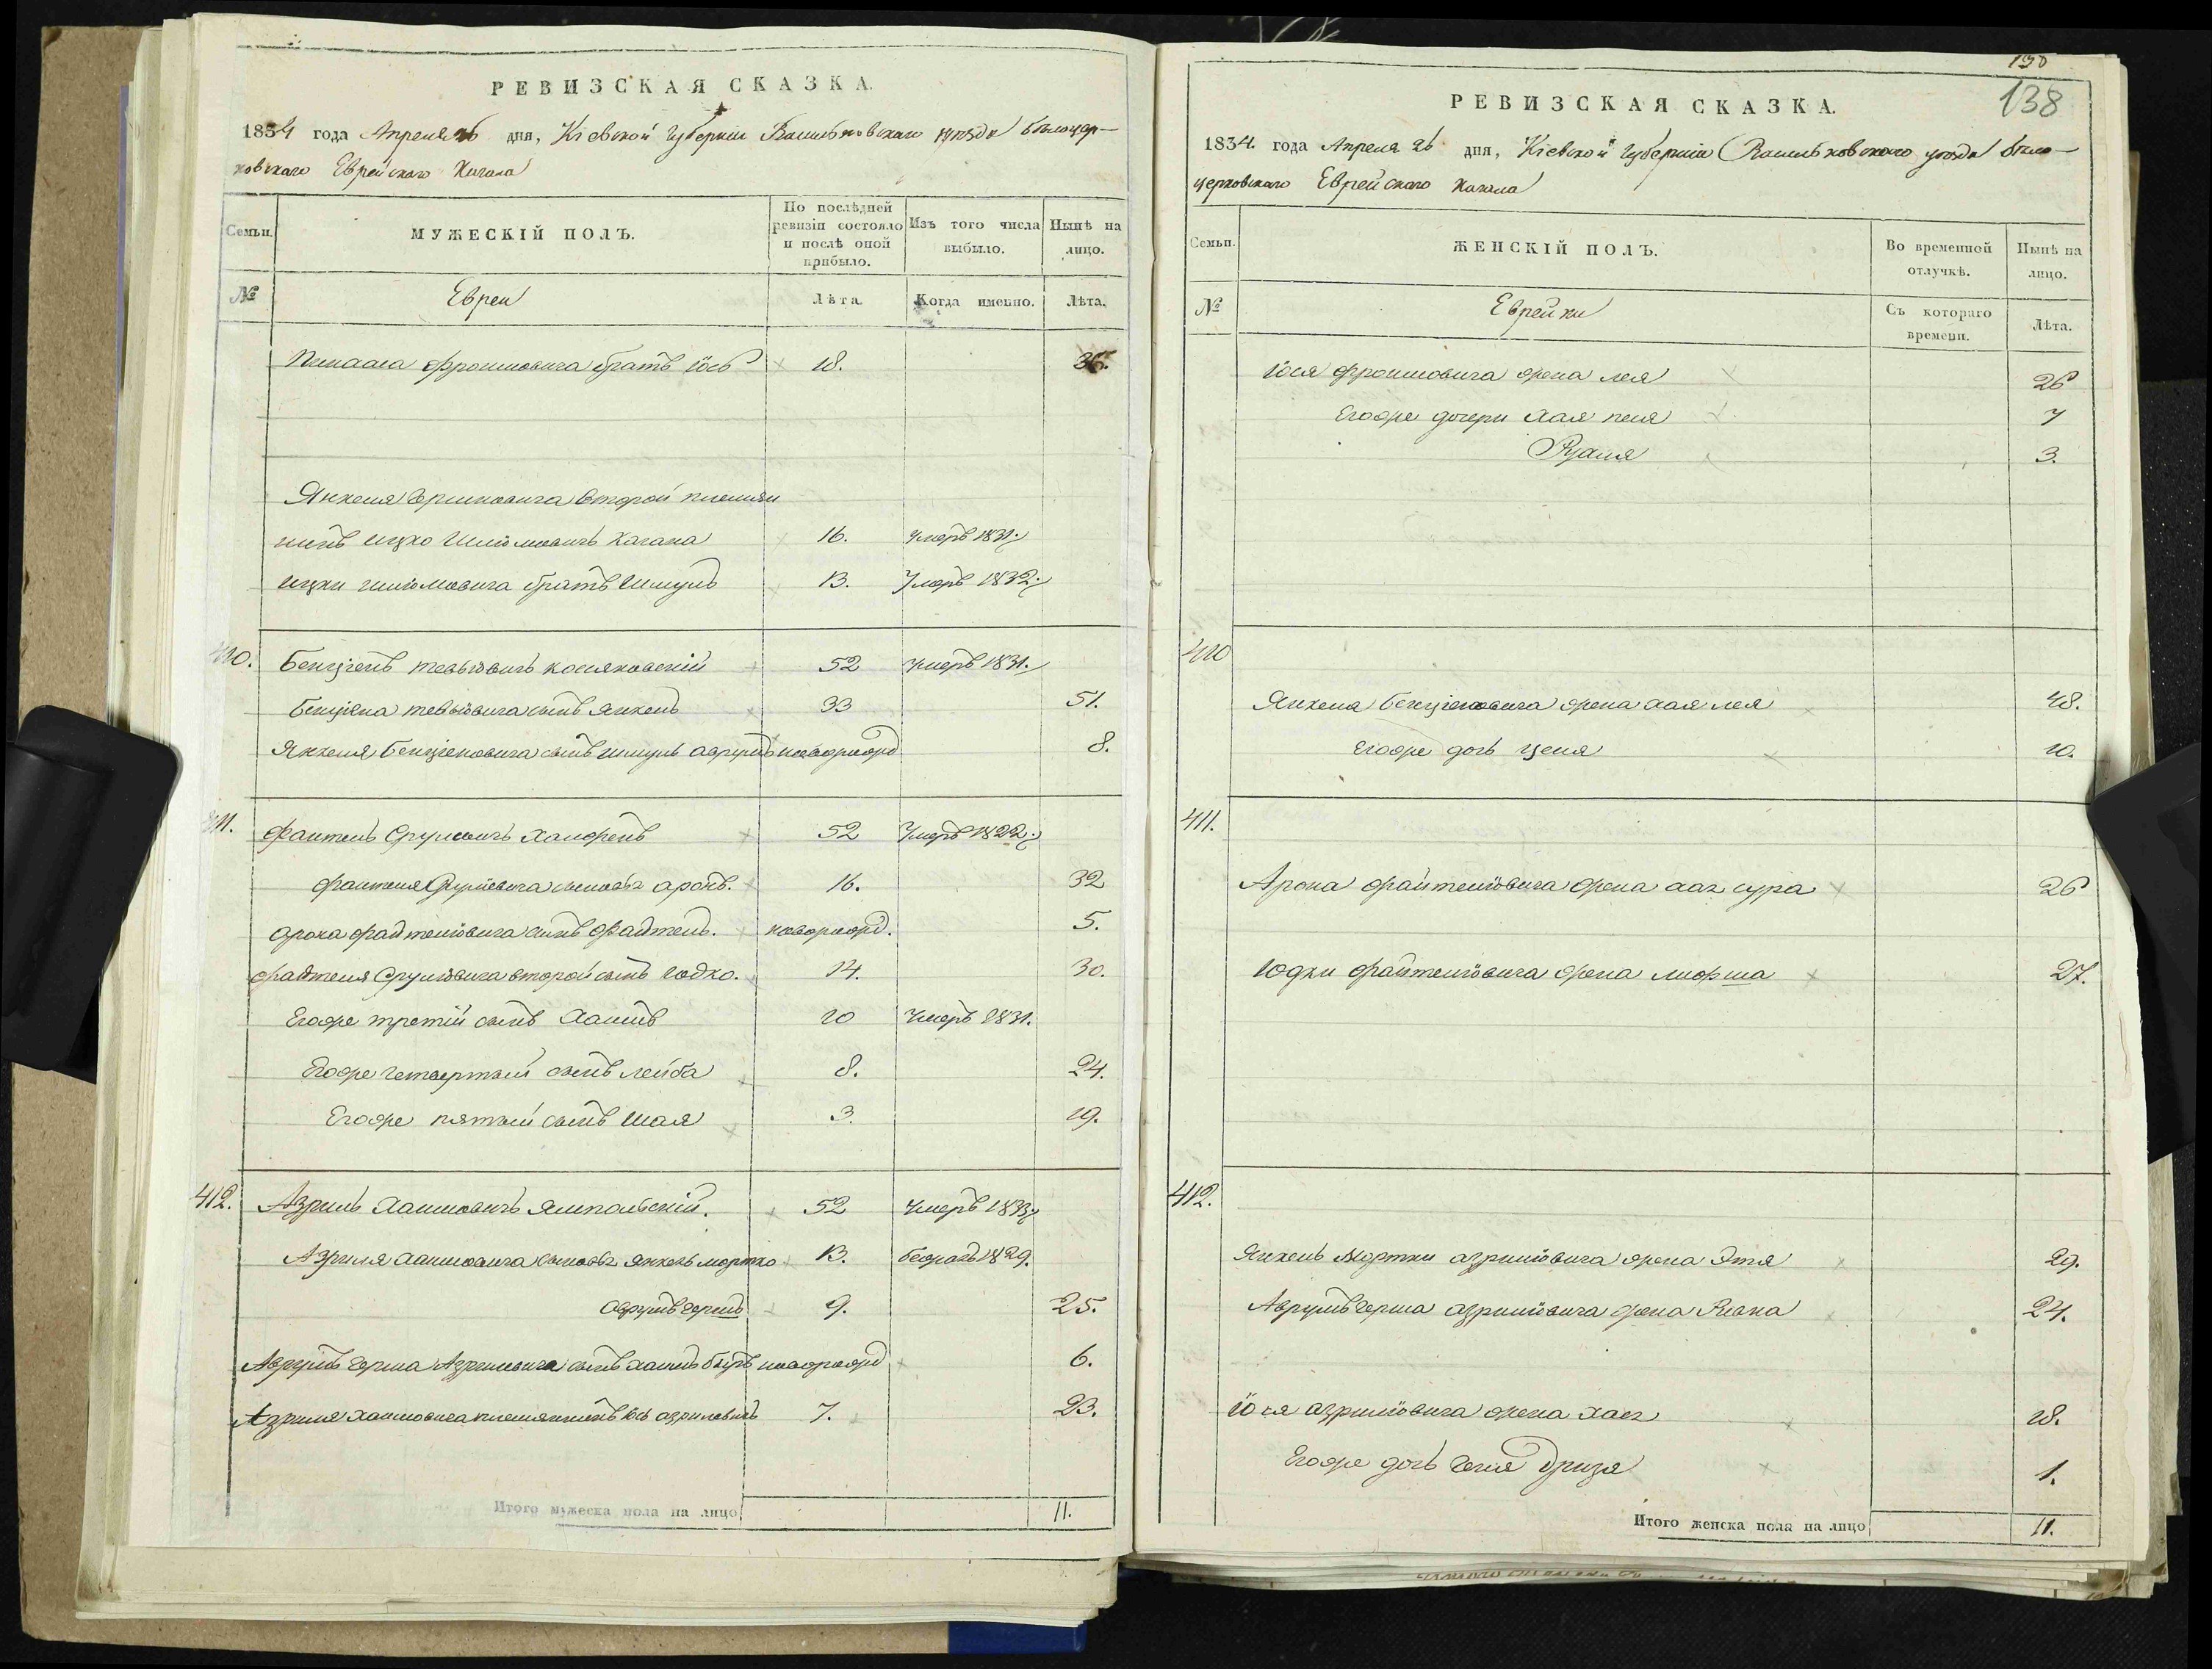 РЕВИЗСКАЯ СКАЗКА.
1834 года Апреля 26 дня, Кіевской Губерніи Васильковскаго уѣзда бѣлоцер-
ковскаго Еврейскаго Кагала
Семьи. МУЖЕСКІЙ ПОЛЪ. По послѣдней ревизіи состояло и послѣ оной прибыло. Изъ того числа выбыло. Нынѣ на лицо.
№ Евреи Лѣта. Когда именно. Лѣта.
Пинхаса Фроимовича братъ Іось 18. 36.
Янкеля Гершковича второй племян
никъ Ицко Шліомовичъ Кагана 16. Умеръ 1831.
Ицки Шліомовича братъ Шмуль 13. Умеръ 1832.
410. Бенціенъ Тевьіовичъ Косяковскій 52 Умеръ 1831.
Бенціена Тевьіовича сынъ Янкель 33 51.
Янкеля Бенціеновича сынъ Шмуль Аврумъ новорожд 8.
411. Файтель Сруліовичъ 52 Умеръ 1822.
Файтеля Сруліовича сыновья Аронъ. 16. 32
Арона Файтеліовича сынъ Файтель. новорожд. 5.
Файтеля Сруліовича второй сынъ Юдко. 14. 30.
Егоже третій сынъ Хаимъ 10 Умеръ 1831.
Егоже четвертый сынъ Лейба 8. 24.
Егоже пятый сынъ Шая 3. 19.
412. Азриль Хаимовичъ Ямпольскій. 52 Умеръ 1833
Азриля Хаимовича сыновья Янкель Мортко 13. бежалъ 1829.
Аврумъ Гершъ 9. 25.
Аврумъ Герша Азриліовича сынъ Хаимъ новорожд 6.
Азриля Хаимовича племянникъ Іось Азриліовичъ 7. 23.
Итого мужеска пола на лицо 11.
130
138
РЕВИЗСКАЯ СКАЗКА.
1834. года Апреля 26 дня, Кіевской Губерніи Васильковскаго уѣзда бѣло-
церковскаго Еврейскаго Кагала
Семьи. ЖЕНСКІЙ ПОЛЪ. Во временной отлучкѣ. Нынѣ на лицо.
№ Еврейки Съ котораго времени. Лѣта.
Іося Фроимовича жена Лея 26
Егоже дочери Хая Песя 7
Рузя 3.
410
Янкеля Бенціеновича жена Хая Лея 48.
Егоже дочь Цеся 10.
411.
Арона Файтеліовича жена Хая Сура 26
Юдки Файтеліовича жена 27.
412.
Янкель Мортки Азриліовича жена Этя 29.
Аврумъ Герша Азриліовича жена Ривка 24.
Іося Азриліовича жена Хая 18.
Егоже дочь Геня Дризя 1.
Итого женска пола на лицо 11.